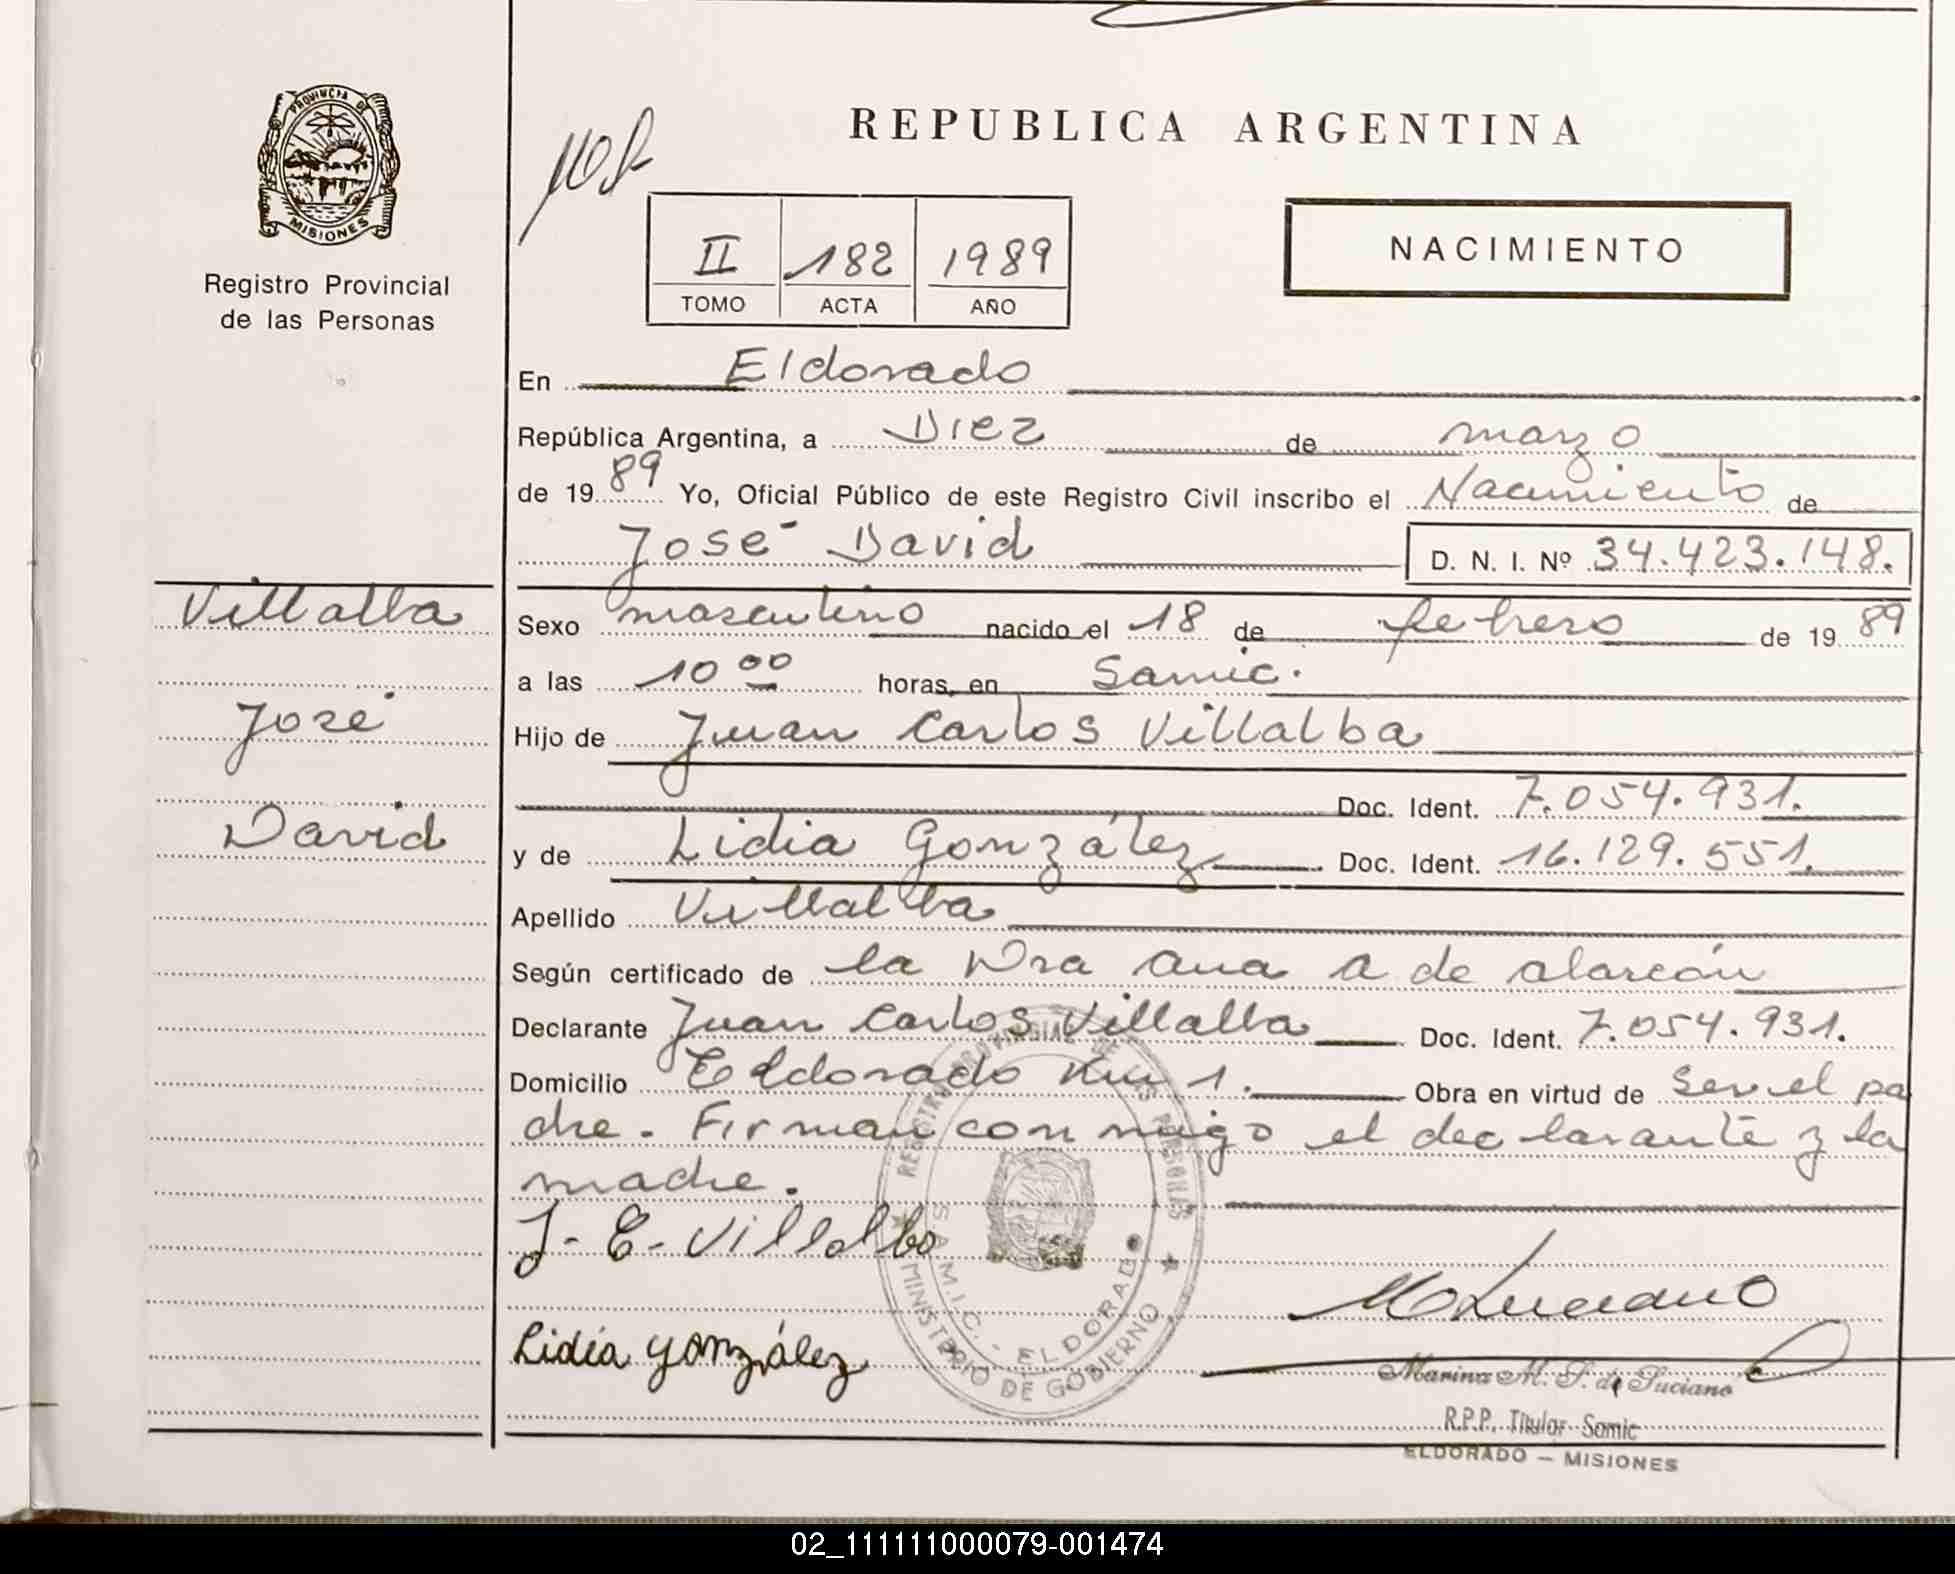 PROVINCIA DE
MISIONES
Registro Provincial
de las Personas
Villalba
José
David
REPUBLICA ARGENTINA
II 182 1989
TOMO ACTA AÑO
NACIMIENTO
En Eldorado
República Argentina, a Diez de marzo
de 1989 Yo, Oficial Público de este Registro Civil inscribo el Nacimiento de
José David D. N. I. Nº 34.423.148.
Sexo masculino nacido el 18 de febrero de 1989
a las 10 00 horas, en Samic.
Hijo de Juan Carlos Villalba
Doc. Ident. 7.054.931.
y de Lidia González Doc. Ident. 16.129.551.
Apellido Villalba
Según certificado de la Dra Ana A de Alarcón
Declarante Juan Carlos Villalba Doc. Ident. 7.054.931.
Domicilio Eldorado Km 1. Obra en virtud de ser el pa
dre. Firman con migo el declarante y la
madre.
J-C-Villalba
Lidia González
REGISTRO PROVINCIAL DE LAS PERSONAS
SAMIC. - ELDORADO
MINISTERIO DE GOBIERNO
Marina M. S. de Luciano
R.P.P. Titular Samic
ELDORADO — MISIONES
02_111111000079-001474